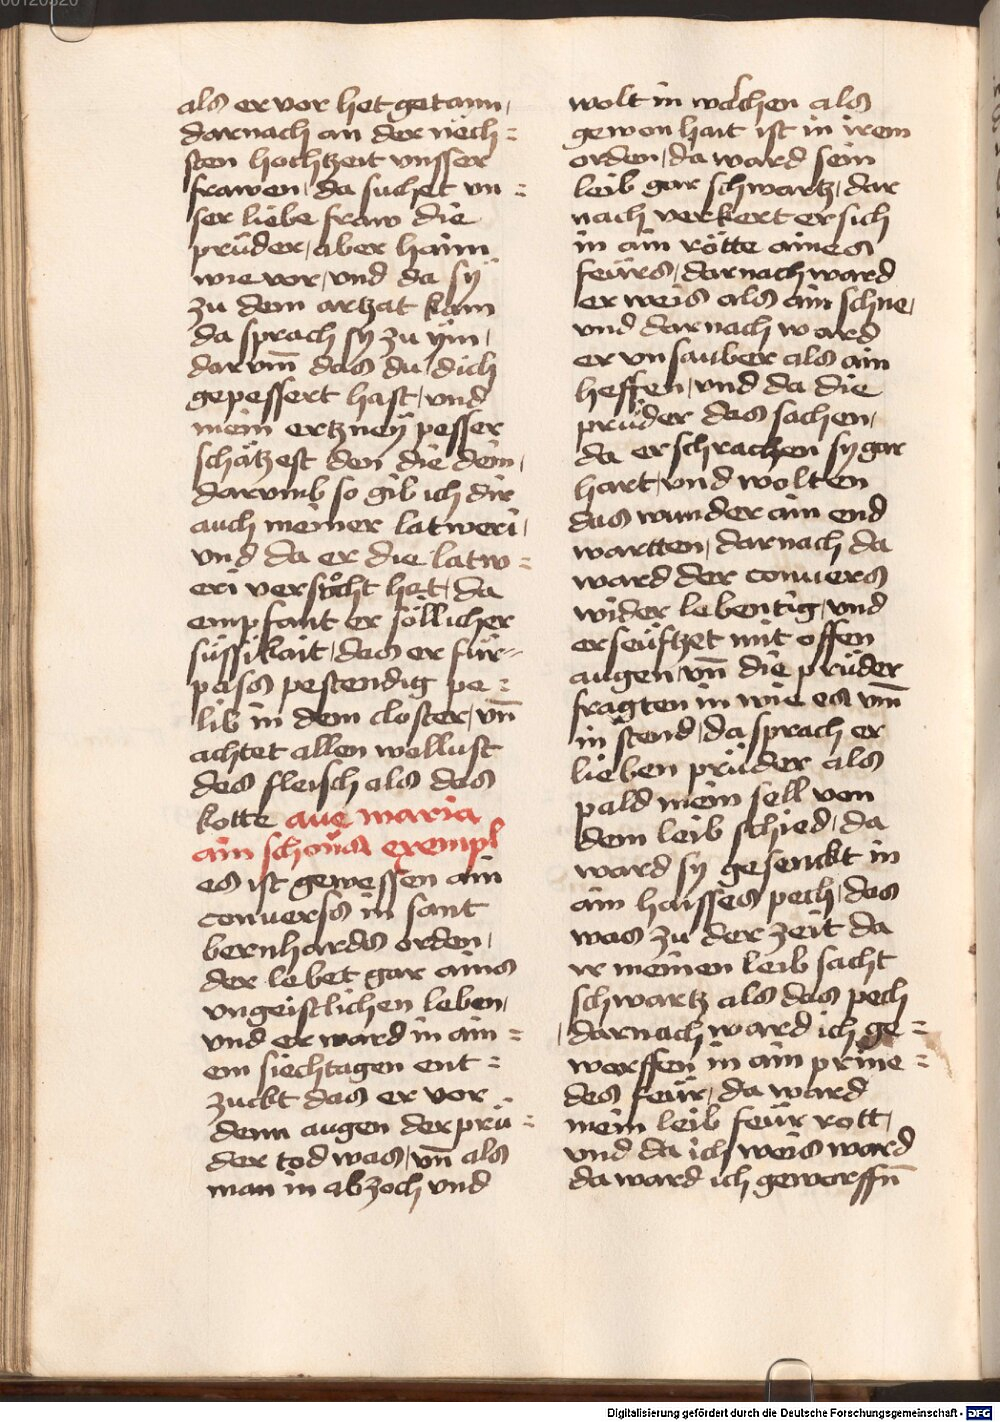 als er vor het getann,
darnach an der nëch =
sten hochtzeit vnsser
frawen, da suchet vn =
ser liebe fraw die
prüder, aber haim
wie vor, vnd da sÿ
zu dem artzat kam
da sprach sy zu ÿm,
dar vm̄ das du dich
gepessert hast, vnd
mein ertzneÿ pesser
schätzest den die dein,
darumb so gib ich dir
auch meiner latweri,
vnd da er die latw =
eri versůcht het, da
empfant er söllicher
süssikait, das er für =
pass pestendig pe =
lib in dem closter, vn̄
achtet allen wollust
des fleisch als des
kotte aue maria
ain schöns exempl
es ist gewessen ain
conuerss in sant
bernhards orden,
der lebet gar ains
vngeistlichen leben,
vnd er ward in ain =
em siechtagen ent =
zuckt das er vor
denn augen der prü =
der tod was, vn̄ als
man in abzoch vnd
wolt in wachen als
gewonhait ist in irem
orden, da ward sein
leib gar schwartz, dar
nach verkert er sich
in ain rötte aines
feürs, darnach ward
er weis als ain schne,
vnd darnach ward
er vnsauber als ain
heffen, vnd da die
prüder das sachen,
da erschracken sy gar
hart, vnd wolten
das wunder ain end
wartten, darnach da
ward der conuers
wider lebentig, vnd
erseüftzet mit offen
augen, vn̄ die prüder
fragten in wie es vm̄
in stend, da sprach er
lieben prüder als
pald mein sell von
dem leib schied, da
ward sy gesenckt in
ain haisses pech, das
was zu der zeit da
ir meinen leib sacht
schwartz als das pech
, darnach ward ich ge =
worffen in ain prine =
des feür, da ward
mein leib feür rott,
vnd da ich weis ward
da ward ich geworffn̄
Digitalisierung gefördert durch die Deutsche Forschungsgemeinschaft - DFG